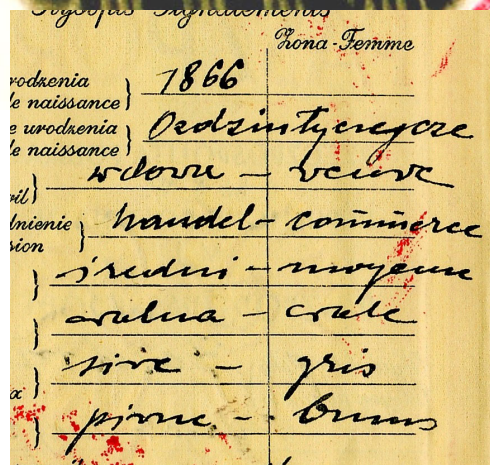 Rysopis Signalements
Żona-Femme
rodzenia
le naissance } 1866
e urodzenia
le naissance }
wdowa – veuve
vil)
dnienie } handel – commerce
sion
średni – moyenne
owalna – ovale
siwe – gris
x } piwne – bruns